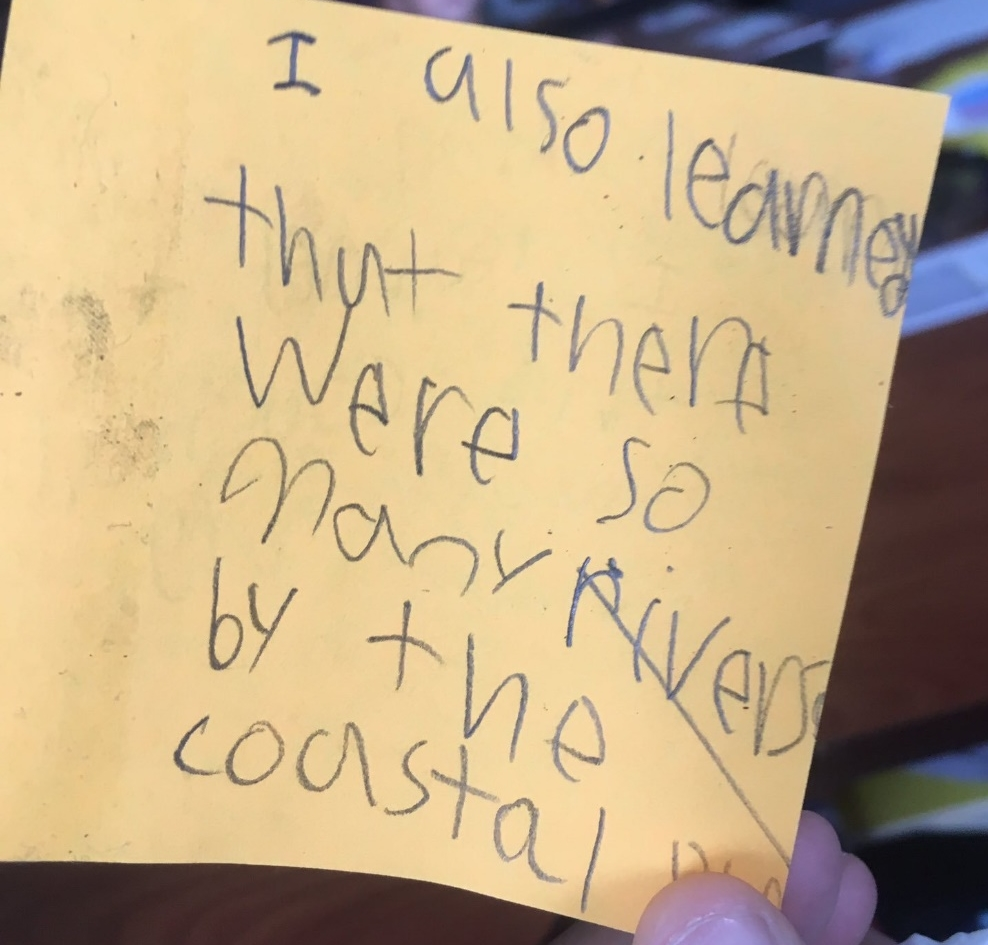 I also learned
that there
were so
many rivers
by the
coastal